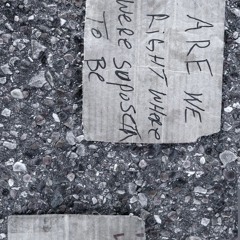 ARE WE
RIGHT WHERE
WERE SUPOSED
TO BE